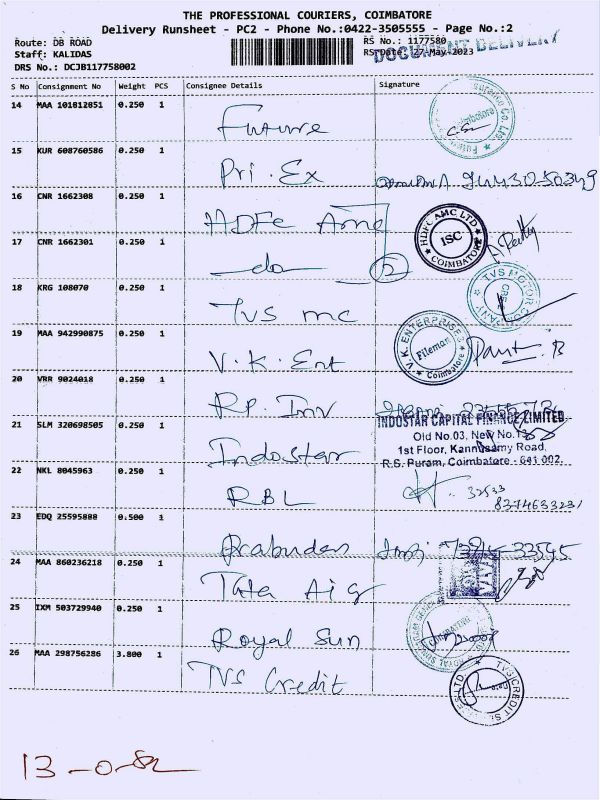 THE PROFESSIONAL COURIERS, COIMBATORE
Delivery Runsheet - PC2 - Phone No.:0422-3505555 - Page No.:2
Route: DB ROAD RS No.: 1177580
Staff: KALIDAS RS Date: 27-May-2023
DOCUMENT DELIVERY
DRS No.: DCJB117758002
S No Consignment No Weight PCS Consignee Details Signature
14 MAA 101812851 0.250 1
Future
15 KUR 608760586 0.250 1
Pri. Ex
16 CNR 1662308 0.250 1
HDFC Amc
HDFC AMC LTD ISC COIMBATORE
17 CNR 1662301 0.250 1
do (2)
18 KRG 108070 0.250 1
TVS MOTOR COMPANY
TVS mc
19 MAA 942990875 0.250 1
V.K. ENTERPRISES Fileman Coimbatore
V.K. Ent
20 VRR 9024018 0.250 1
RP. Inv
21 SLM 320698505 0.250 1
INDOSTAR CAPITAL FINANCE LIMITED
Old No.03, New No.
1st Floor, Kannusamy Road,
R.S. Puram, Coimbatore - 641 002.
Indostar
22 NKL 8045963 0.250 1
RBL
8374633231
23 EDQ 25595888 0.500 1
Prabudas
24 MAA 860236218 0.250 1
Tata Aig
25 IXM 503729940 0.250 1
Royal Sun
26 MAA 298756286 3.800 1
TVS Credit
13-0-82